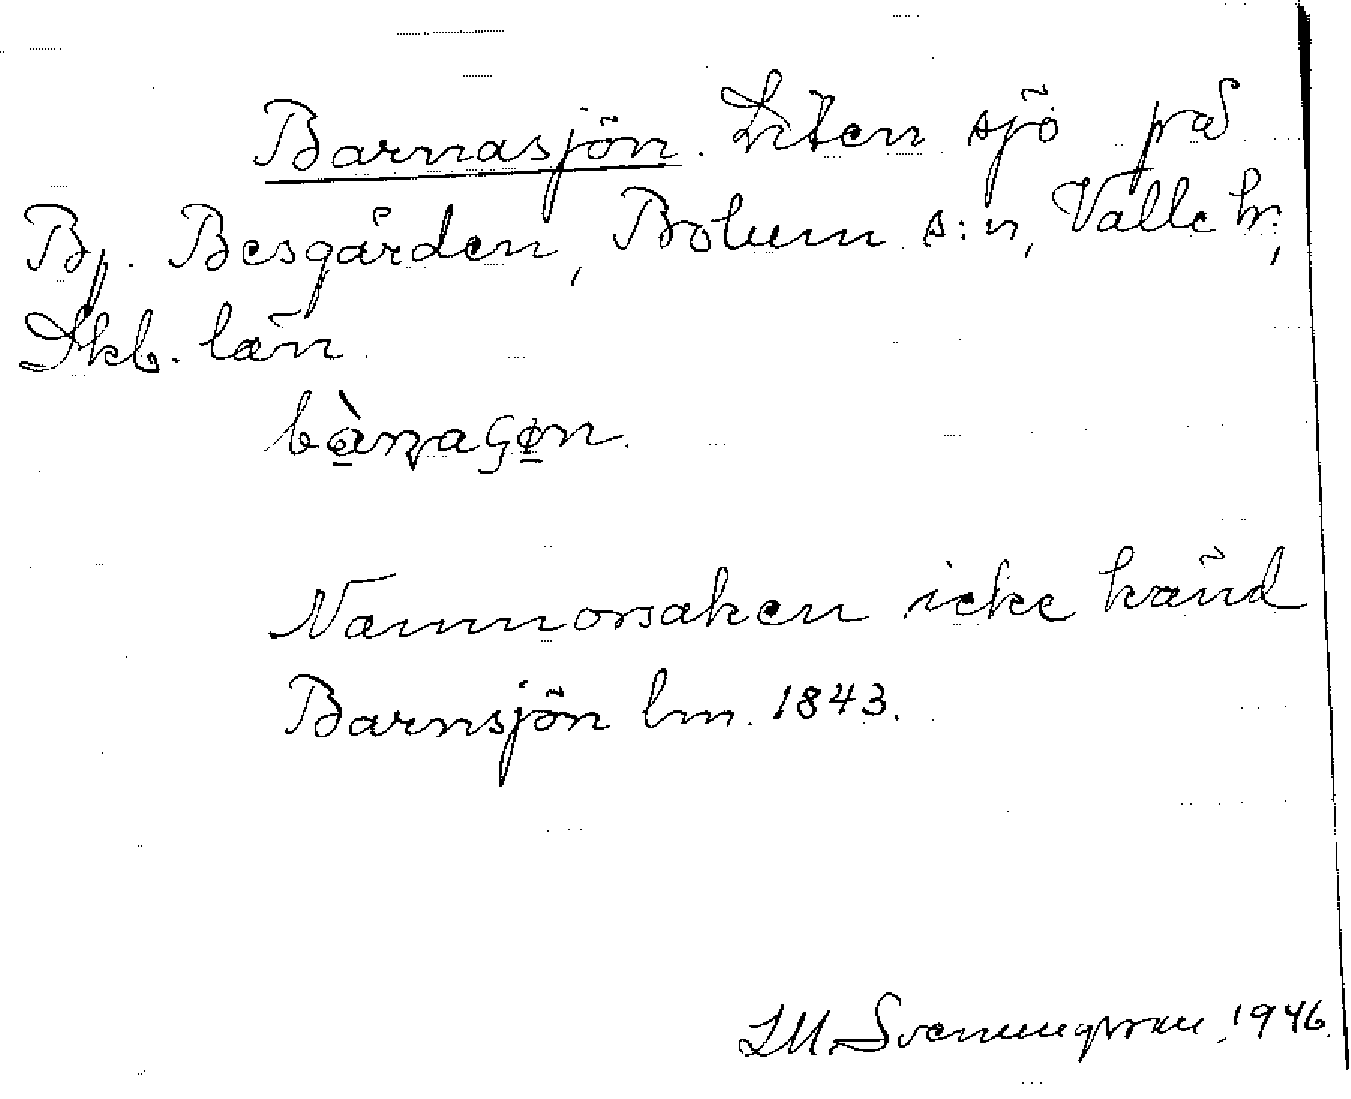 Barnasjön. Liten sjö på
Bp. Besgården, Bolum s:n, Valle hr,
Skb. län
bànaʂøn.
Namnorsaken icke känd
Barnsjön lm. 1843.
1946.